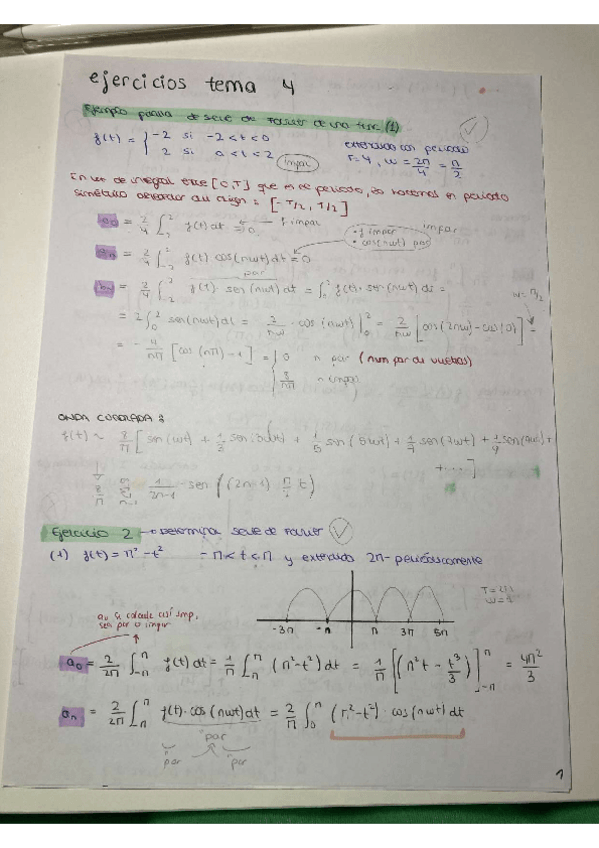 ejercicios tema 4
Ejemplo de serie de Fourier de una func (1)
f(t) = { -2 si -2<t<0
2 si 0<t<2
(impar)
extendida con periodo
T=4, w = 2π/4 = π/2
En vez de integral entre [0,T] que es un periodo, lo hacemos en periodo
simétrico al origen: [-T/2, T/2]
a₀ = 2/4 ∫₋₂² f(t) dt = 0 f impar
aₙ = 2/4 ∫₋₂² f(t) cos(nwt) dt = 0
• f impar
• cos(nwt) par
impar
bₙ = 2/4 ∫₋₂² f(t) · sen(nwt) dt = ∫₀² f(t) · sen(nwt) dt =
par
w = π/2
= 2∫₀² sen(nwt) dt = 2/nw · cos(nwt) |₀² = 2/nw [cos(2nw) - cos(0)] =
= -4/nπ [cos(nπ) - 1] = { 0 n par (num par de vueltas)
8/nπ n impar
ONDA CUADRADA:
f(t) ~ 8/π [sen(wt) + 1/3 sen(3wt) + 1/5 sen(5wt) + 1/7 sen(7wt) + 1/9 sen(9wt) +
+ ....]
8/π Σ 1/2n-1 · sen((2n-1) π/2 t)
Ejercicio 2 → Determinar serie de Fourier
(1) f(t) = π² - t² -π < t < π y extendida 2π-periódicamente
-3π -π π 3π 5π
T = 2π
w = 1
a₀ se calcula así siemp,
sea par o impar
a₀ = 2/2π ∫₋π^π f(t) dt = 1/π ∫₋π^π (π² - t²) dt = 1/π [(π²t - t³/3)]₋π^π = 4π²/3
aₙ = 2/2π ∫₋π^π f(t) · cos(nwt) dt = 2/π ∫₀^π (π² - t²) · cos(nwt) dt
par
par par
1